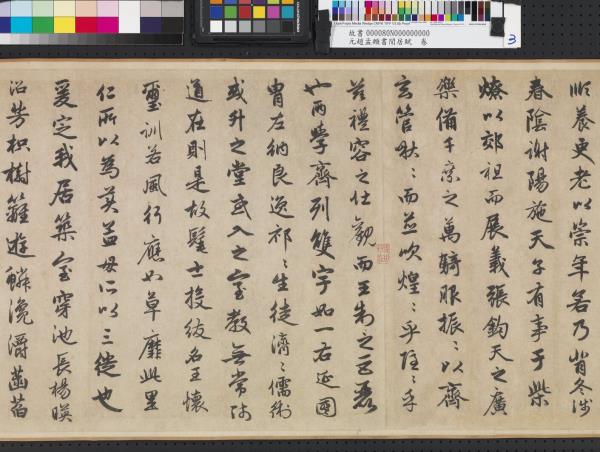 故書 000080N000000000
元趙孟頫書閒居賦 卷
3
順養更老以崇年若乃背冬涉
春陰謝陽施天子有事于柴
燎以郊祖而展義張鈞天之廣
樂備千乘之萬騎服振〻以齊
玄管啾〻而並吹煌〻乎隱〻乎
茲禮容之壯觀而王制之巨麗
也兩學齊列雙宇如一右延國
胄左納良逸祁〻生徒濟〻儒術
或升之堂或入之室教無常師
道在則是故髦士投紱名王懷
璽訓若風行應如草靡此里
仁所以為美孟母所以三徙也
爰定我居築室穿池長楊映
沼芳枳樹籬遊鱗瀺灂菡萏